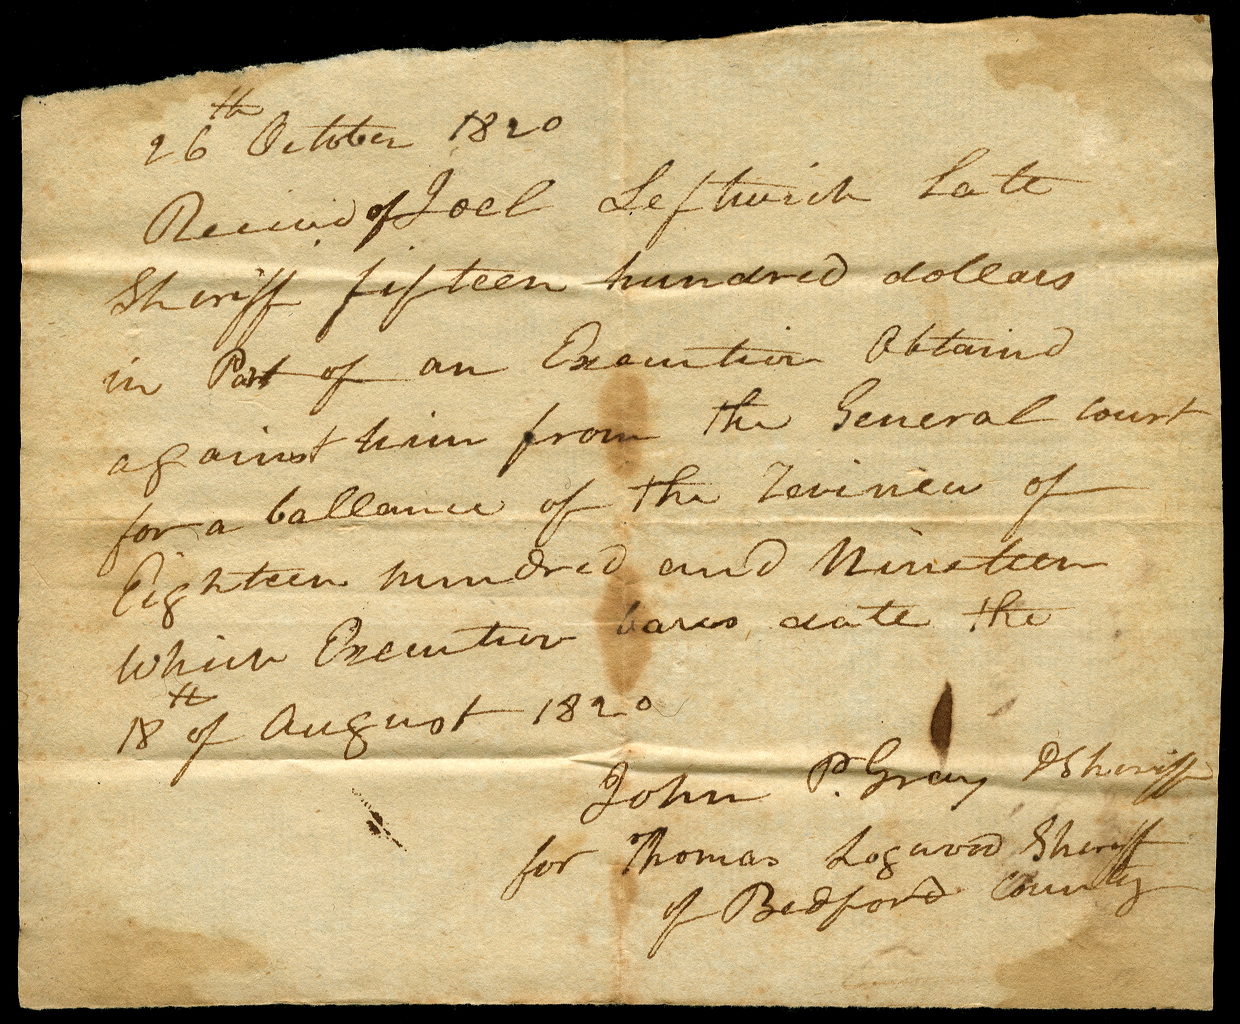 26th October 1820
Receivd of Joel Leftwich Late
Sheriff fifteen hundred dollars
in Part of an Execution Obtaind
against him from the General court
for a ballance of the Revinew of
Eighteen hundred and Nineteen
Which Execution bares date the
18th of August 1820
John P. Gray D Sheriff
for Thomas Logwood Sheriff
of Bedford County